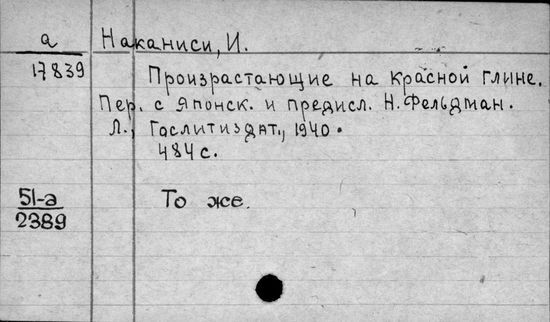 а
17839
Наканиси, И.
Произрастающие на красной глине.
Пер. с японск. и предисл. Н. Фельдман.
Л., Гослитиздат, 1940.
484 с.
51-а
2389
То же.